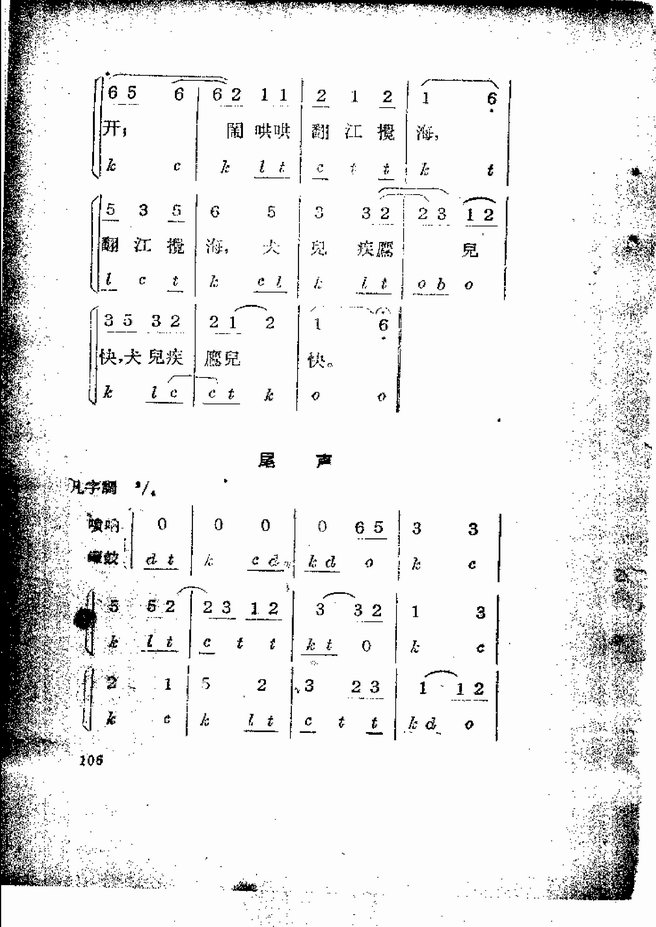 6 5 6 | 6 2 1 1 | 2 1 2 | 1 6
开； 闹哄哄 翻江攪 海，
k c | k l t | c t t | k t
5 3 5 | 6 5 | 3 3 2 | 2 3 1 2
翻江攪 海，犬 兒 疾鷹 兒
l c t | k c l | k l t | o b o
3 5 3 2 | 2 1 2 | 1 6
快，犬兒疾 鷹兒 快。
k l c | c t k | o o
尾 声
凡字調 2/4
嗩吶 0 0 | 0 0 | 0 6 5 | 3 3
d t k | c d | k d o | k c
5 5 2 | 2 3 1 2 | 3 3 2 | 1 3
k l t | c t t | k t 0 | k c
2 1 | 5 2 | 3 2 3 | 1 1 2
k c | k l t | c t t | k d o
106